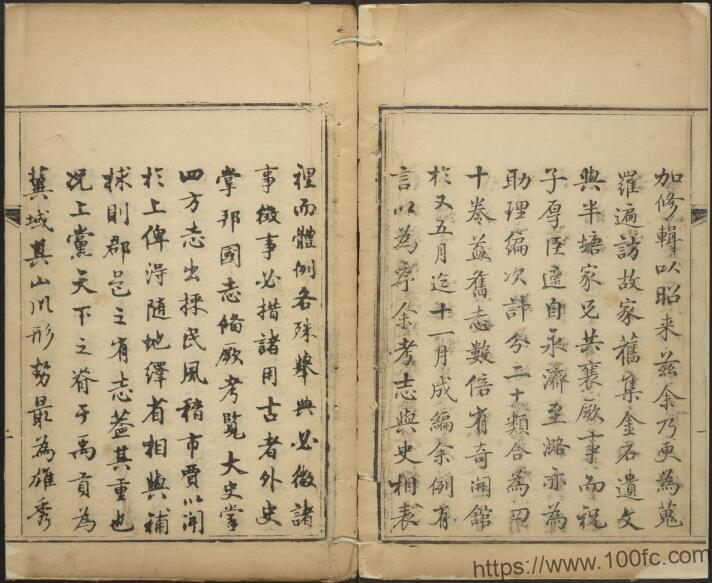 加修輯以昭来兹余乃更為蒐
羅遍訪故家舊集金石遺文
與半塘家兄共襄厥事而祝
子厚臣適自永濟至潞亦為
助理編次計分三十類合為四
十卷益舊志數倍有奇開館
於又五月迄十一月成編余例有
言以為序余考志與史相表
裡而體例各殊舉典必徵諸
事徵事必措諸用古者外史
掌邦國志備厥考覽大史掌
四方志出採民風稽市賈以聞
於上俾得随地繹省相與補
捄則郡邑之有志蓋其重也
况上黨天下之脊于禹貢為
冀域其山川形勢最為雄秀
https://www.100fc.com